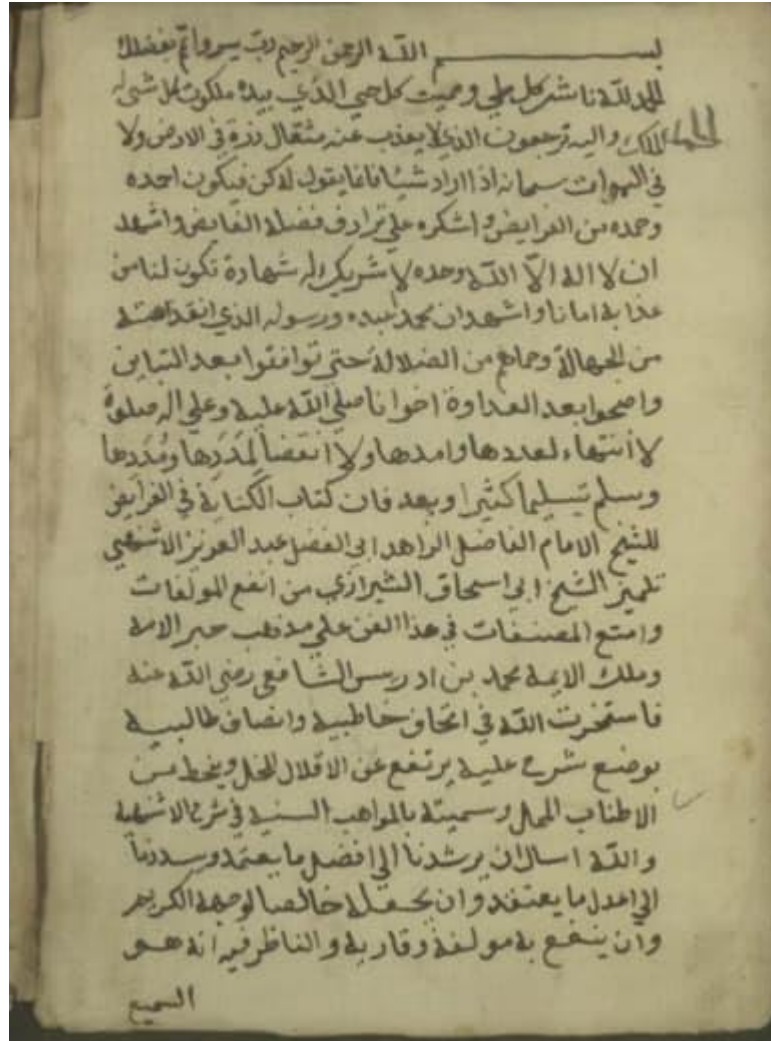 بسم الله الرحمن الرحيم رب يسر واتم بفضلك
الحمد لله ناشر كل طي ومميت كل حي الذي بيده ملكوت كل شي له
الملك واليه ترجعون الذي لا يعذب عنه مثقال ذرة في الارض ولا
في السموات سبحانه اذا اراد شيئا فانما يقول له كن فيكون احمده
وحمده من الفرايض واشكره علي ترادف فضله الفايض واشهد
ان لا اله الا الله وحده لا شريك له شهادة تكون لنا من
عذابه امانا واشهد ان محمدا عبده ورسوله الذي انقذ امته
من الجهالة وحماهم من الضلالة حتي توافقوا بعد التباين
واصبحوا بعد العداوة اخوانا صلي الله عليه وعلي اله صلوة
لا انتهاء لعددها وامدها ولا انقضا لمددها ومددها
وسلم تسليما كثيرا وبعد فان كتاب الكفاية في الفرايض
للشيخ الامام الفاضل الزاهد ابي الفضل عبد العزيز الاشنهي
تلميذ الشيخ ابي اسحاق الشيرازي من انفع المولفات
وامتع المصنفات في هذا الفن علي مذهب حبر الامة
وملك الايمة محمد بن ادريس الشافعي رضي الله عنه
فاستخرت الله في اتحاف خاطبيه وانصاف طالبيه
بوضع شرح عليه يرتفع عن الاقلال المخل وينحط من
الاطناب الممل وسميته بالمواهب السنية في شرح الاشنهية
والله اسال ان يرشدنا الي افضل ما يعتمد ويسددنا
الي اعدل ما يعتقد وان يجعله خالصا لوجهه الكريم
وان ينفع به مولفه وقاريه والناظر فيه انه هو
السميع